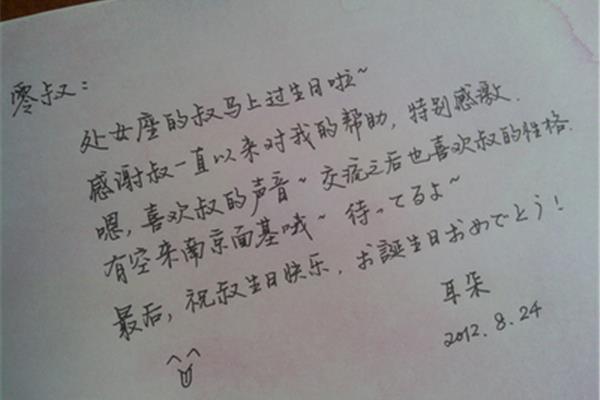 零叔：
处女座的叔马上过生日啦~
感谢叔一直以来对我的帮助，特别感激．
嗯，喜欢叔的声音~交流之后也喜欢叔的性格．
有空来南京面基哦~ 待ってるよ~
最后，祝叔生日快乐，お誕生日おめでとう！
耳朵
2012.8.24